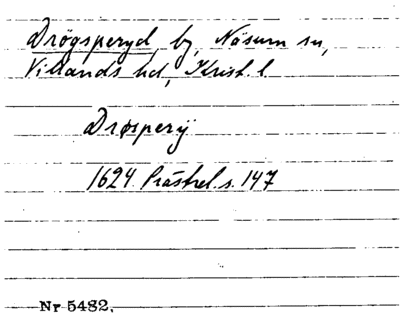 Drögsperyd, by, Näsum sn,
Villands hd, Krist. l.
Drøsperÿ
1624. Prästrel. s. 147
Nr 5482,